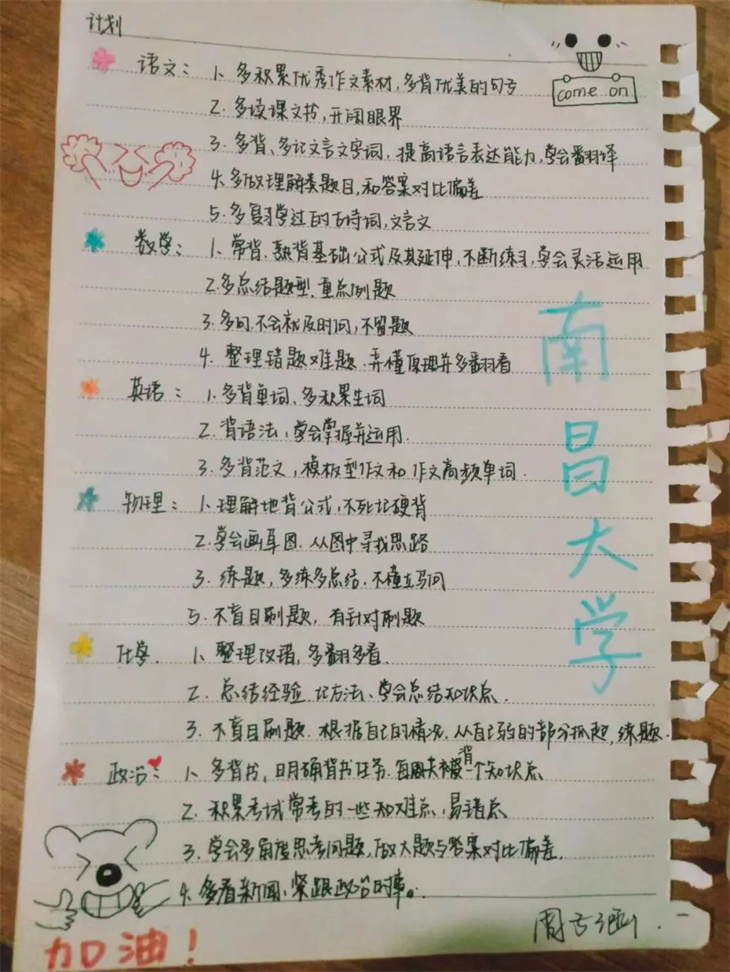 计划
come on
语文：1、多积累优秀作文素材，多背优美的句子
2. 多读课文书，开阔眼界
3. 多背、多记文言文字词，提高语言表达能力，学会翻译
4. 多做理解类题目，和答案对比偏差
5. 多复习学过的古诗词，文言文
数学：1、常背、熟背基础公式及其延伸，不断练习，学会灵活运用
2. 多总结题型、重点例题
3. 多问，不会就及时问，不留题
4. 整理错题难题，弄懂原理并多翻看
英语：1. 多背单词、多积累生词
2. 背语法，学会掌握并运用.
3. 多背范文，模板型作文和作文高频单词.
物理：1. 理解地背公式，不死记硬背
2. 学会画草图，从图中寻找思路
3. 练题，多练多总结，不懂立马问
5. 不盲目刷题，有针对刷题
化学. 1、整理改错，多翻多看.
2. 总结经验，记方法、学会总结知识点.
3. 不盲目刷题，根据自己的情况，从自己弱的部分抓起，练题.
政治：1、多背书，明确背书任务，每周背一个知识点
2. 积累考试常考的一些和难点，易错点
3. 学会多角度思考问题，做大题与答案对比偏差.
4. 多看新闻、紧跟政治时事。
南昌大学
加油！